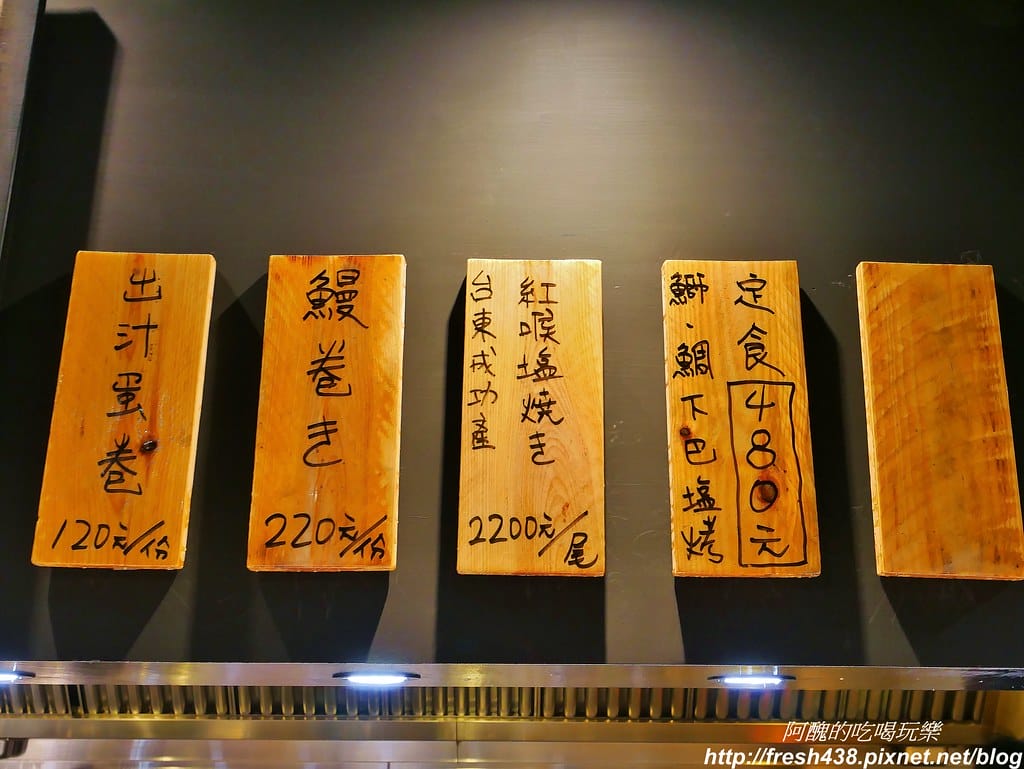 出汁蛋卷
120元/份
鰻卷き
220元/份
紅喉塩焼き
台東成功產
2200元/尾
定食480元
鰤、鯛下巴塩烤
阿醜的吃喝玩樂
http://fresh438.pixnet.net/blog